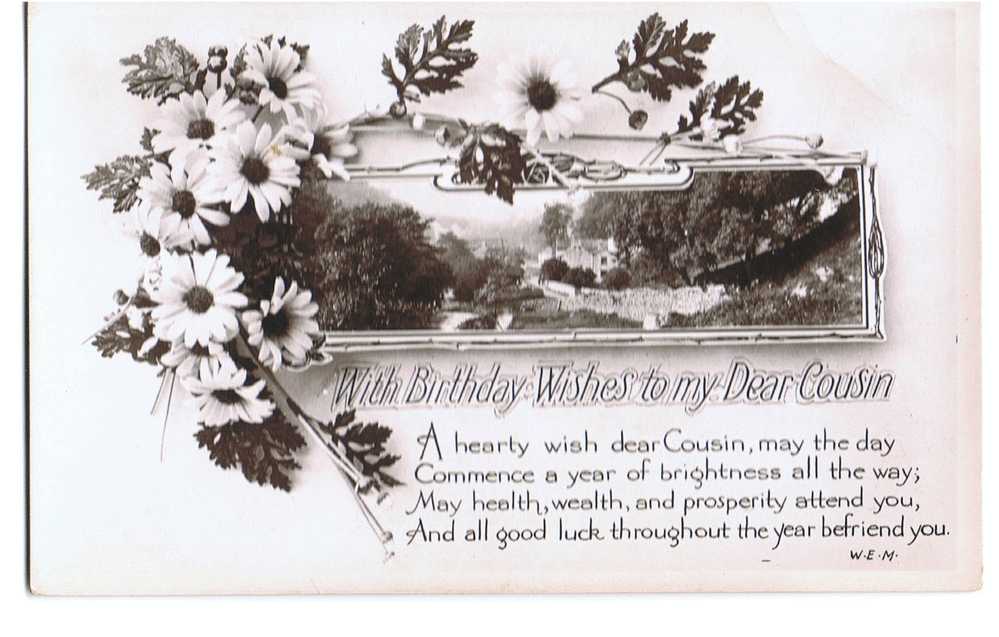 With Birthday Wishes to my Dear Cousin
A hearty wish dear Cousin, may the day
Commence a year of brightness all the way;
May health, wealth, and prosperity attend you,
And all good luck throughout the year befriend you.
W.E.M.